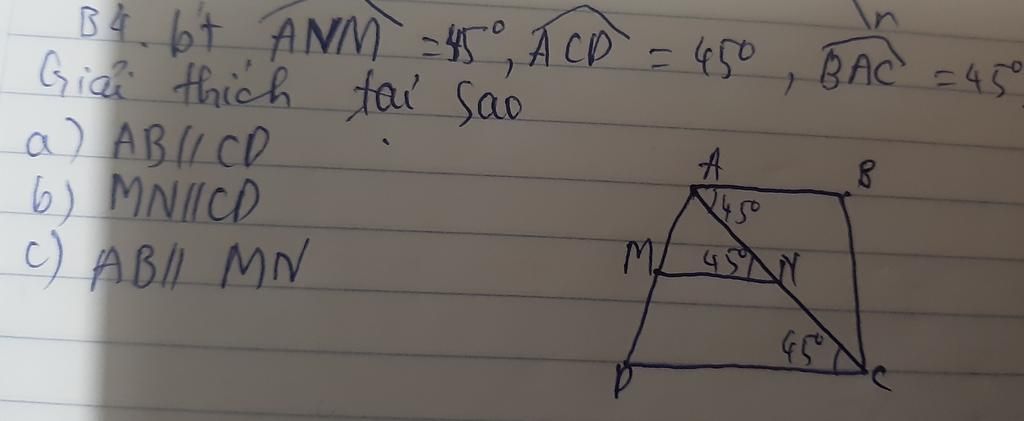 B4. bt ANM = 45°, ACD = 45°, BAC = 45°
Giải thích tại sao
a) AB // CD
b) MN // CD
c) AB // MN
A
B
45°
M
45°
N
45°
D
C